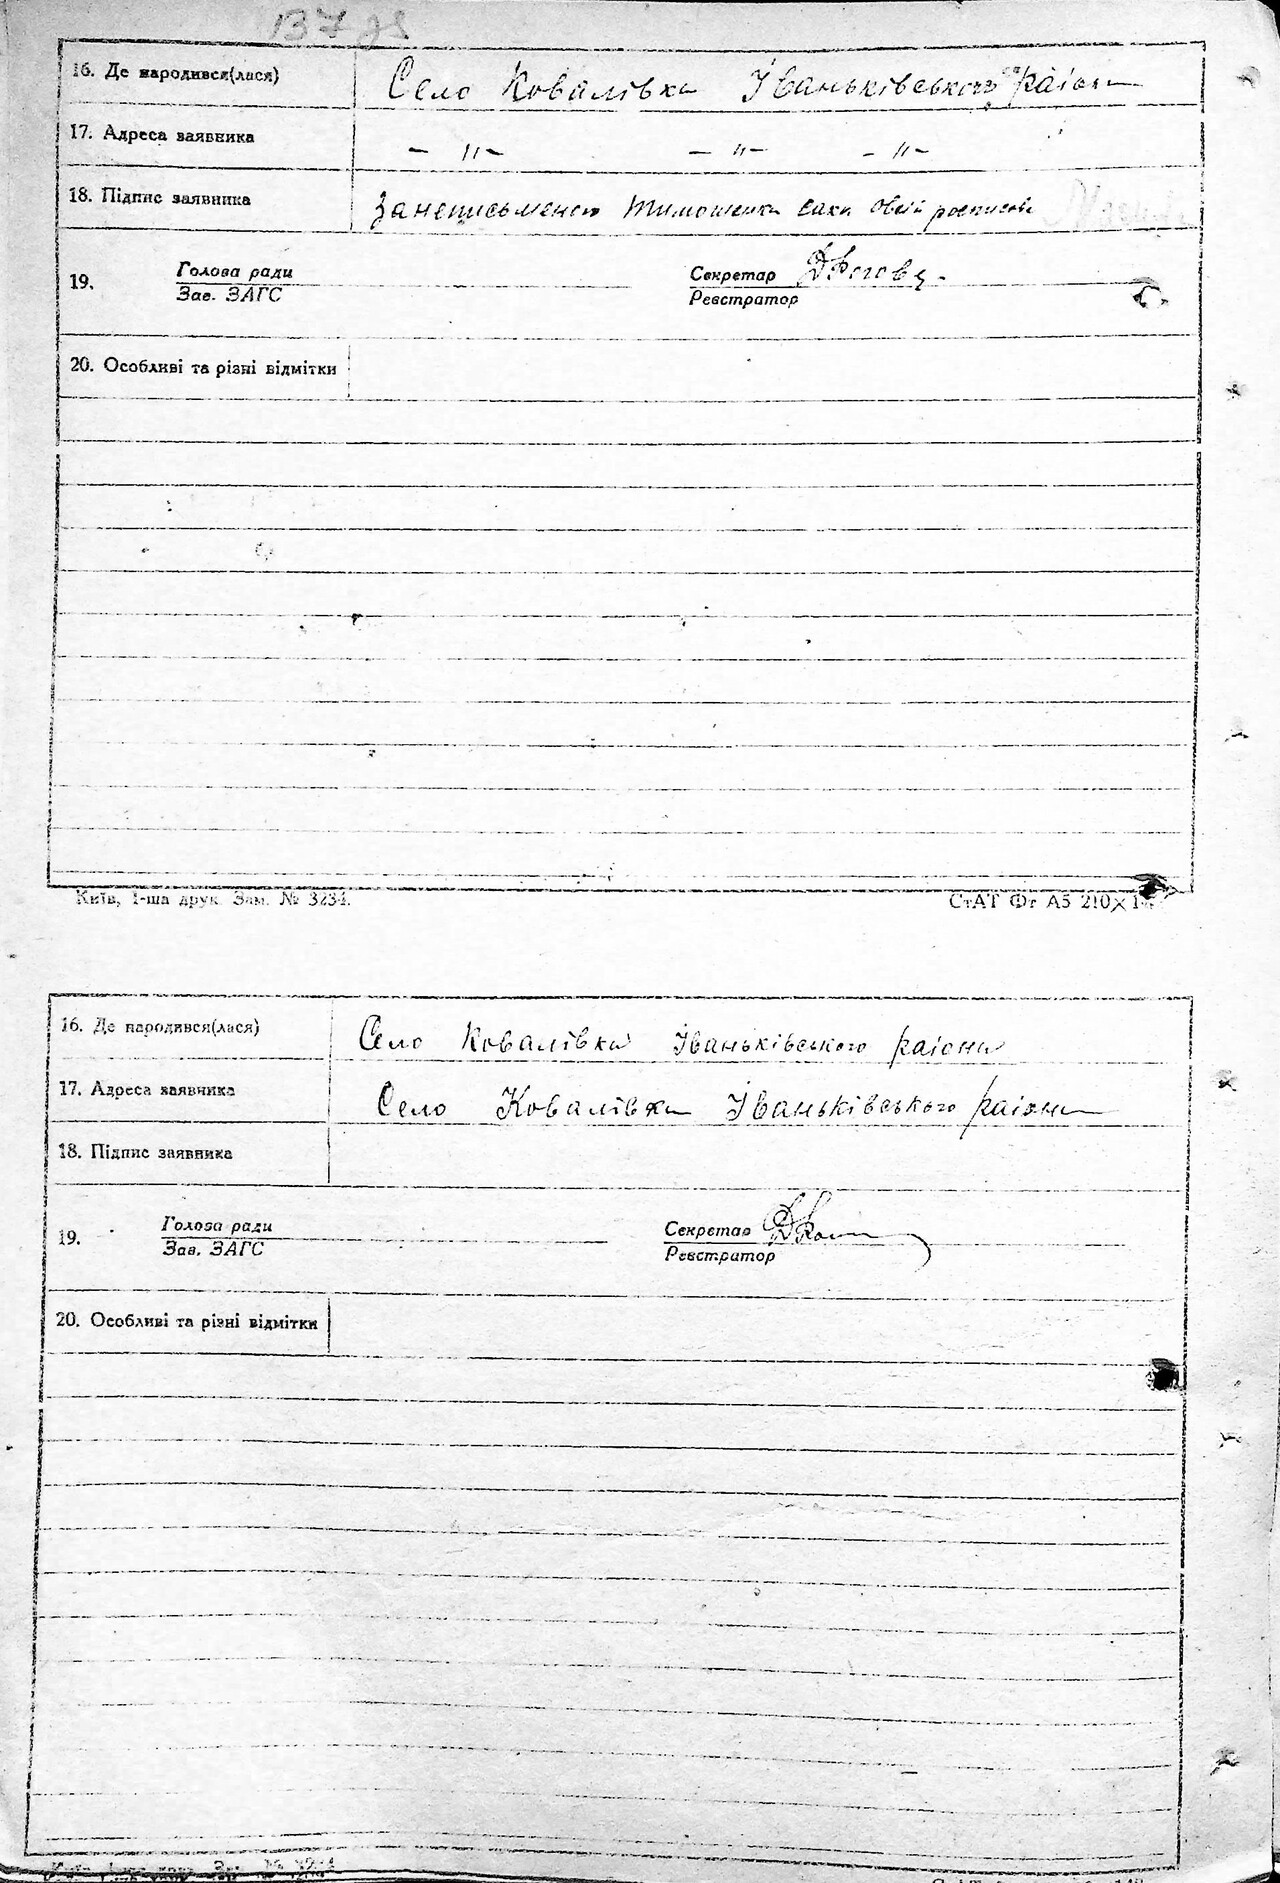 137 зв
16. Де народився(лася) Село Ковалівка Іваньківського району
17. Адреса заявника — " — — " — — " —
18. Підпис заявника За неписьменого Тимошенка
19. Голова ради Секретар
Зав. ЗАГС Реєстратор
20. Особливі та різні відмітки
Київ, 1-ша друк. Зам. № 3234. СтАТ Фт А5 210×
16. Де народився(лася) Село Ковалівка Іваньківського району
17. Адреса заявника Село Ковалівка Іваньківського району
18. Підпис заявника
19. Голова ради Секретар
Зав. ЗАГС Реєстратор
20. Особливі та різні відмітки